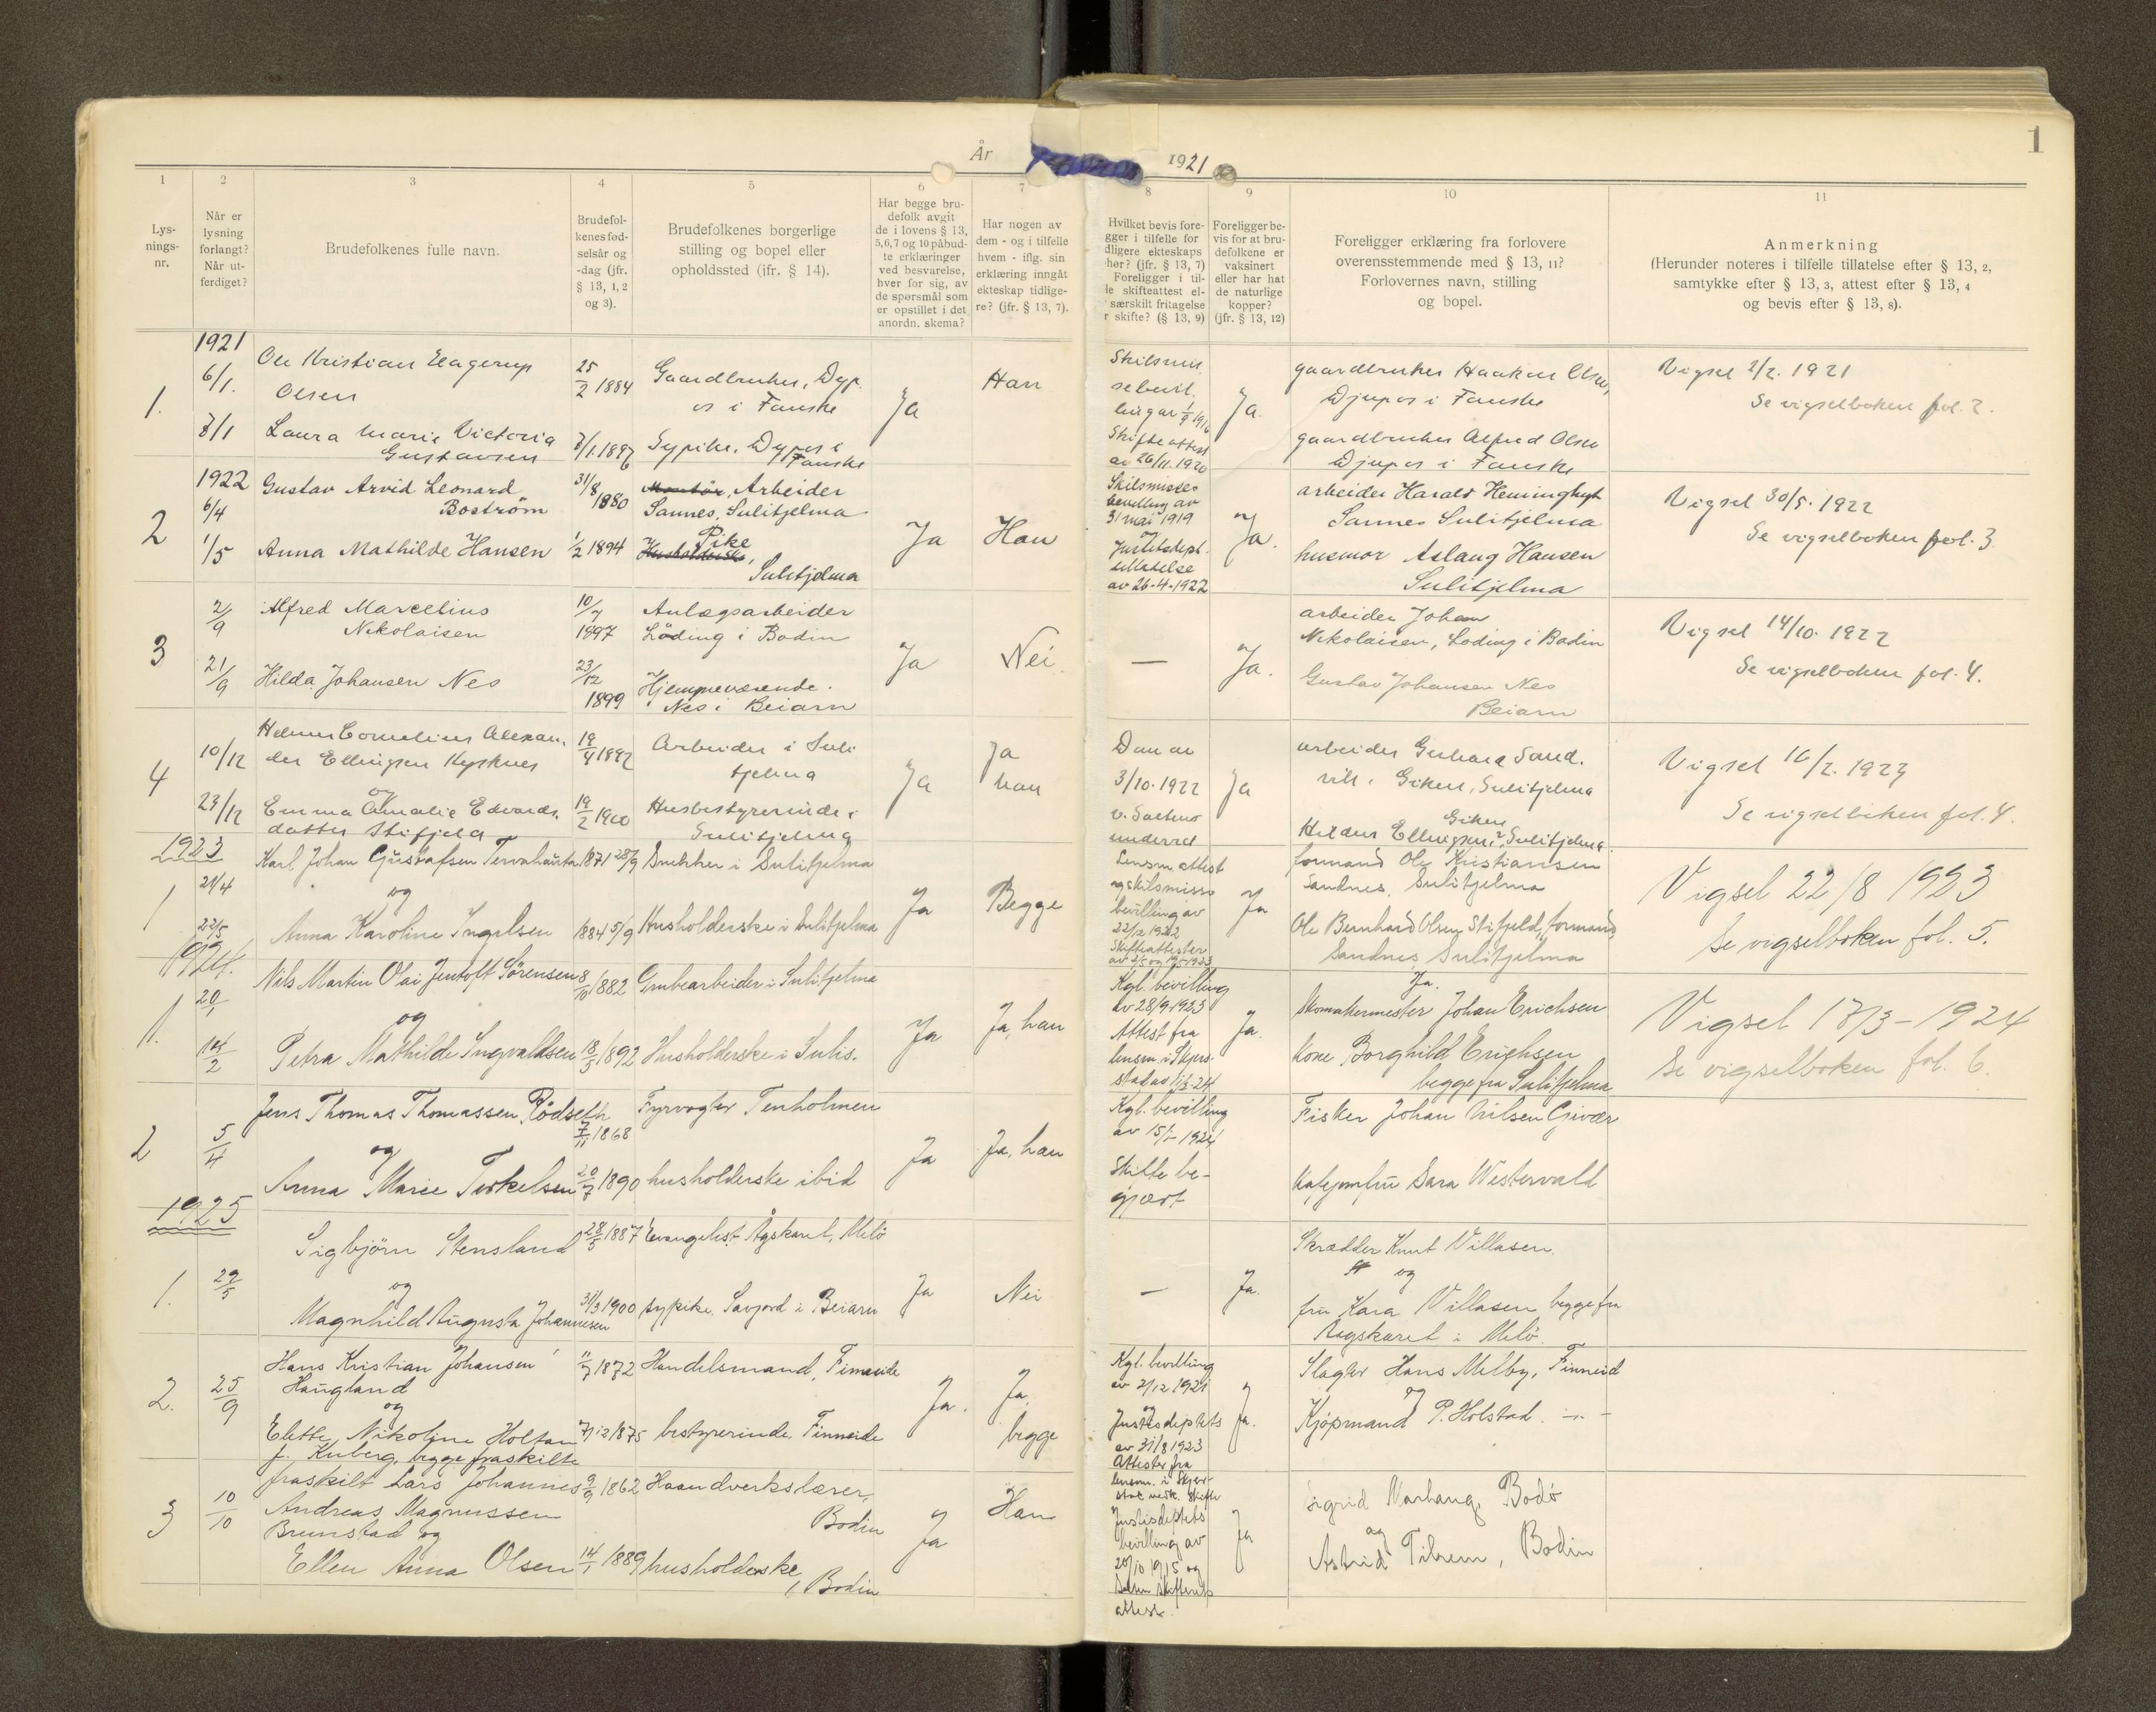 År
1921
1
1
2
3
4
5
6
7
8
9
10
11
Lys-
nings-
nr.
Når er
lysning
forlangt?
Når ut-
ferdiget?
Brudefolkenes fulle navn.
Brudefol-
kenes fød-
selsår og
-dag (jfr.
§ 13, 1, 2
og 3).
Brudefolkenes borgerlige
stilling og bopel eller
opholdssted (jfr. § 14).
Har begge bru-
defolk avgit
de i lovens § 13,
5,6,7 og 10 påbud-
te erklæringer
ved besvarelse,
hver for sig, av
de spørsmål som
er opstillet i det
anordn. skema?
Har nogen av
dem - og i tilfelle
hvem - iflg. sin
erklæring inngått
ekteskap tidlige-
re? (jfr. § 13, 7).
Hvilket bevis fore-
gger i tilfelle for
dligere ekteskaps
hør? (jfr. § 13, 7)
Foreligger i til-
le skifteattest el-
særskilt fritagelse
r skifte? (§ 13, 9)
Foreligger be-
vis for at bru-
defolkene er
vaksinert
eller har hat
de naturlige
kopper?
(jfr. § 13, 12)
Foreligger erklæring fra forlovere
overensstemmende med § 13, 11?
Forlovernes navn, stilling
og bopel.
Anmerkning
(Herunder noteres i tilfelle tillatelse efter § 13, 2,
samtykke efter § 13, 3, attest efter § 13, 4
og bevis efter § 13, 8).
1921
1.
6/1.
8/1
Ole Kristian Elagerup
Olsen
Laura Marie Victoria
Gustavsen
25/2 1884
Gaardbruker, Dyp.
os i Fauske
Sypike, Dypos i
Fauske
Ja
Han
Skilsmis
sebevil.
ling av 1/9 1916
Skifteattest
av 26/11.1920
Ja.
gaardbruker Haakon Olsen,
Djupos i Fauske
gaardbruker Alfred Olsen
Djupos i Fauske
Vigsel 2/2. 1921
Se vigselboken fol. 2.
1922
2
6/4
1/5
Gustav Arvid Leonard
Boström
Anna Mathilde Hansen
31/8 1880
1/2 1894
Montör, Arbeider
Sannes, Sulitjelma
Pike
Husholderske,
Sulitjelma
Ja
Han
Skilsmisse-
bevilling av
31 mai 1919
og
Justitsdept.
tillatelse
av 26-4-1922
Ja.
arbeider Harald Heminghyt
Sannes Sulitjelma
husmor Aslaug Hansen
Sulitjelma
Vigsel 30/5. 1922
Se vigselboken fol. 3
3
2/9
21/9
Alfred Marcelius
Nikolaisen
Hilda Johansen Nes
10/7
1897
23/12
1899
Anlægsarbeider
Löding i Bodin
Hjemmeværende.
Nes i Beiarn
Ja
Nei.
—
Ja.
arbeider Johan
Nikolaisen, Loding i Bodin
Gustav Johansen Nes
Beiarn
Vigsel 14/10. 1922
Se vigselboken fol. 4.
4
10/12
23/12
Helmer Cornelius Alexan.
der Ellingsen Kysknes
og
Emma Amalie Edvards.
datter Stifjeld
19/4 1892
19/2 1900
Arbeider i Suli
tjelma
Husbestyrerinde i
Sulitjelma
Ja
Ja
han
Dom av
3/10.1922
v. Saltens
underret
Ja
arbeider Gerhard Sand.
vik. Giken, Sulitjelma
Giken
Ellingsen, Sulitjelma.
Vigsel 16/2. 1923
Se vigselboken fol. 4.
1923
1
21/4
22/5
Karl Johan Gustafsen Tervahauta
og
Anna Karoline Ingelsen
1871 28/9
1884 5/9
Snekker i Sulitjelma
Husholderske i Sulitjelma
Ja
Begge
Lensm. attest
og skilsmisse
bevilling av
22/2 1922
Skifteattester
Ja
formand Ole Kristiansen
Sandnes, Sulitjelma
Ole Bernhard Olsen Stifjeld, formand
Sandnes, Sulitjelma
Vigsel 22/8 1923
Se vigselboken fol. 5.
1924.
1.
14/2
Nils Martin Olai Jentoft Sörensen
og
Petra Mathilde Ingvaldsen
8/10 1882
18/5 1892
Grubearbeider i Sulitjelma
Husholderske i Sulis.
Ja
Ja, han
Kgl. bevilling
av 28/9-1923
Attest fra
lensm. i Skjer-
stad av 11/2-24
Ja.
Ja.
Skomakermester Johan Erichsen
Kone Borghild Erichsen
begge fra Sulitjelma
Vigsel 18/3 - 1924
Se vigselboken fol. 6.
2
5/4
Jens Thomas Thomassen Rödseth
og
Anna Marie Terkelsen
7/11 1868
20/7 1890
Fyrvogter Tenholmen
husholderske ibid
Ja
Ja, han
Kgl. bevilling
av 15/- 1924
Skifte be-
gjært
Fisker Johan Nilsen Givær
Sara Westervald
1925
1.
29/5
Sigbjörn Stensland
og
Magnhild Augusta Johannesen
28/5 1887
31/3 1900
Evangelist Ågskaret, Melö
sypike. Savjord i Beiarn
Ja
Nei
—
Ja.
Skrædder Knut Villasen.
og
fru Kara Villasen begge fra
Aagskaret i Melö.
2.
25/9
Hans Kristian Johansen
Haugland
og
Elette Nikoline Holtan
f. Kuberg, begge fraskilte
11/7 1872
7/12 1875
Handelsmand, Finneide
bestyrerinde, Finneide
Ja.
Ja,
begge
Kgl. bevilling
av 2/12 1921
og
Justisdeptets
av 31/8 1923
Attester fra
lensm. i Skjer-
stad vedk. skifte
Ja.
Slagter Hans Melby, Finneid
og
Kjöpmand P. Holstad. -"-
3
10/10
fraskilt Lars Johannes
Andreas Magnussen
Brunstad og
Ellen Anna Olsen
9/9 1862
14/1 1889
Haandverkslærer,
Bodin
husholderske,
Bodin
Ja
Han
Justisdeptets
bevilling av
20/10 1915 og
Salten skifterets
attest.
Ja
Sigrid Varhaug, Bodö
og
Astrid Tilrem, Bodin